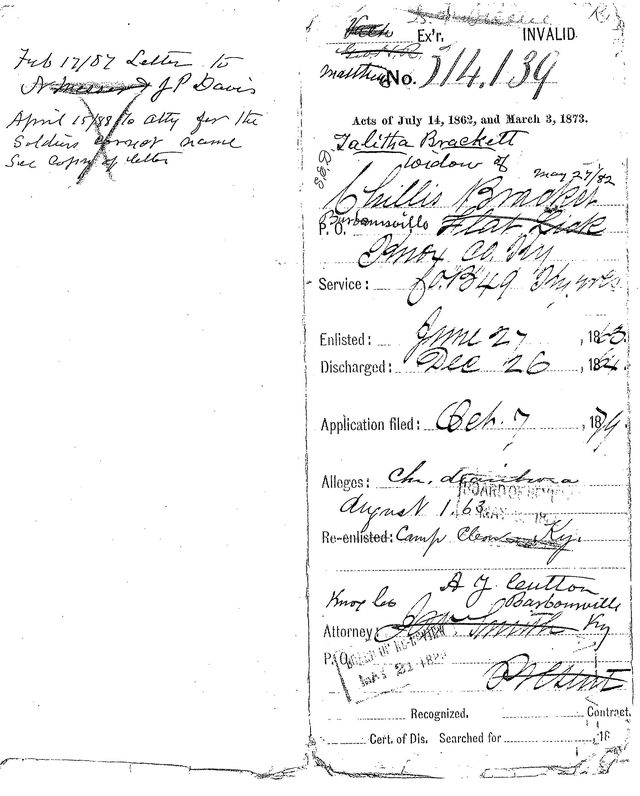 Feb 17/87 Letter to
J P Davis
April 15/88 to atty for the
Soldiers correct name
See copy of letter
Ex'r. INVALID.
No. 314.139
Acts of July 14, 1862, and March 3, 1873.
Talitha Brackett
widow of
May 27/82
Chillis Bracket
Barbourville
P. O. Flat Lick
Knox Co. Ky
Service: Co. B 49 Ky
Enlisted: June 27, 1863
Discharged: Dec 26, 1864
Application filed: Oct. 7, 1879
Alleges: Chr. diarrhoea
August 1. 63
Re-enlisted: Camp Ky.
A J
Knox Co Barbourville
Attorney: Smith Ky
P. O.
BOARD OF RE-REVIEW
MAY 21
Present
Recognized. Contract.
Cert. of Dis. Searched for , 18